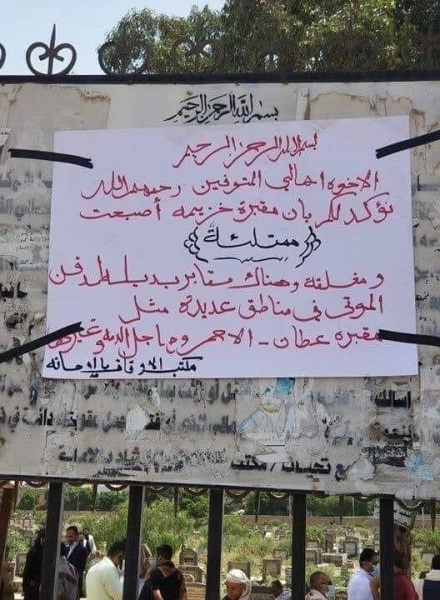 بسم الله الرحمن الرحيم
بسم الله الرحمن الرحيم
الاخوة اهالي المتوفين رحمهم الله
نؤكد لكم بان مقبرة خزيمه أصبحت
((ممتلئة))
ومغلقة وهناك مقابر بديله لدفن
الموتى في مناطق عديدة مثل
مقبره عطان - الاحمر وماجل الدمه وغيرها
مكتب الاوقاف بالامانه